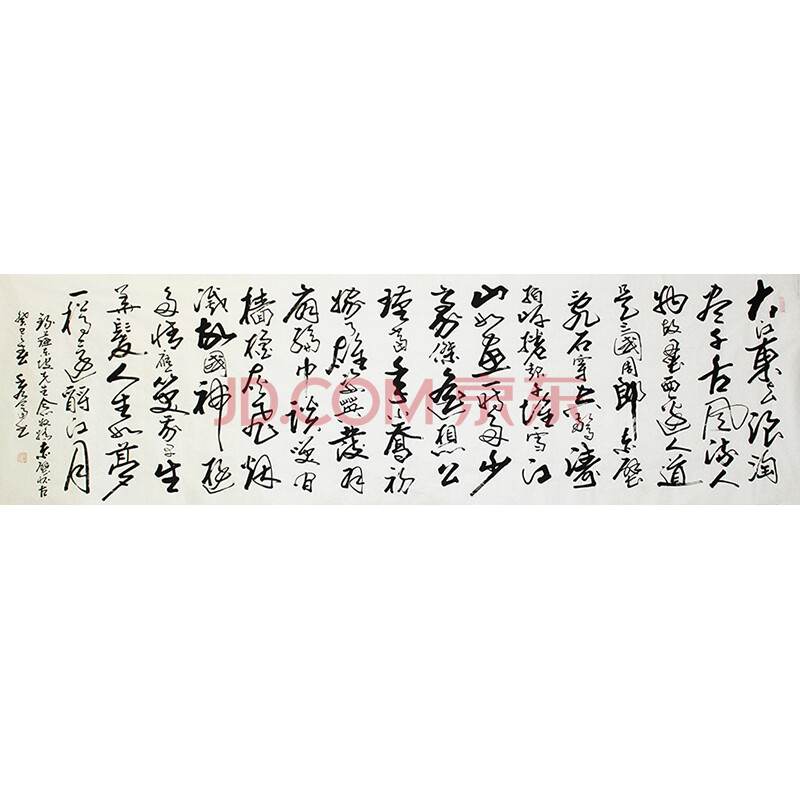 大江東去浪淘
尽千古風流人
物故壘西邊人道
是三國周郎赤壁
亂石穿空驚濤
拍岸捲起千堆雪江
山如畫一時多少
豪傑遙想公
瑾當年小喬初
嫁了雄姿英發羽
扇綸巾談笑間
檣櫓灰飛烟
滅故國神遊
多情應笑我早生
華髮人生如夢
一樽還酹江月
錄蘇東坡先生念奴嬌赤壁懷古
癸巳之春
JD.COM京东